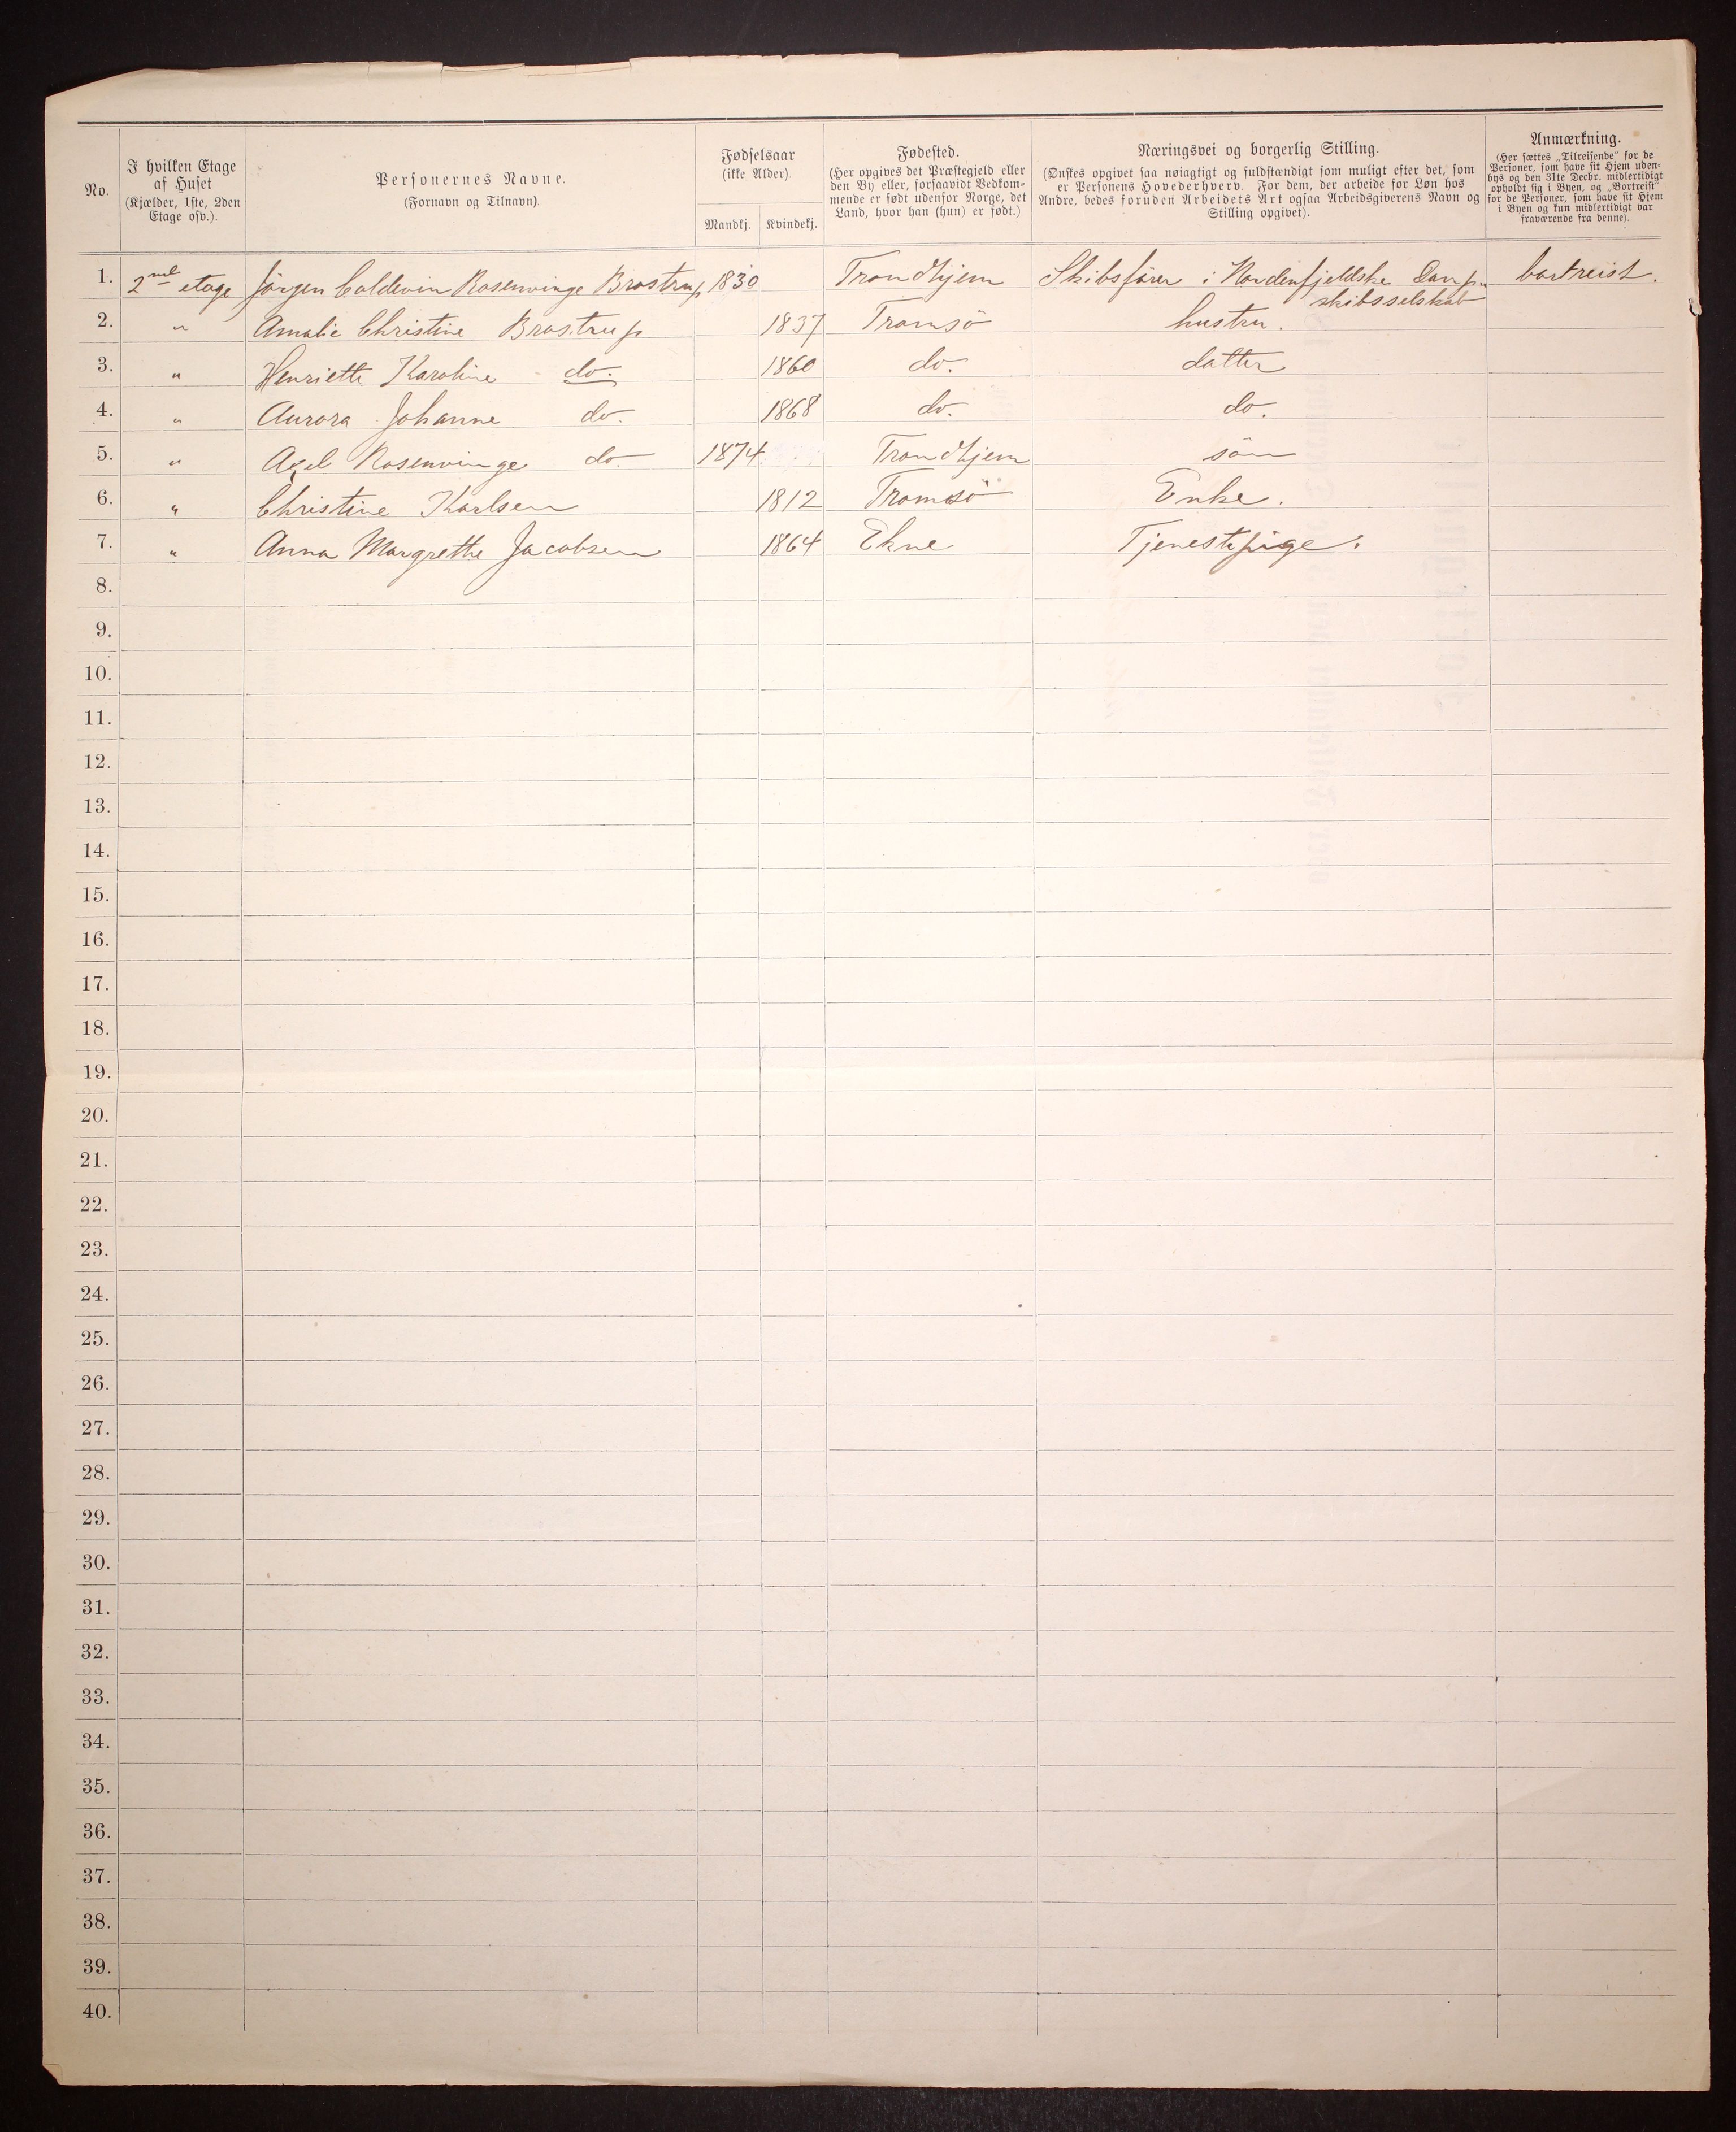 No.
I hvilken Etage
af Huset
(Kjælder, 1ste, 2den
Etage osv.).
Personernes Navne.
(Fornavn og Tilnavn)
Fødselsaar
(ikke Alder).
Mandkj. Kvindekj.
Fødested.
(Her opgives det Præstegjeld eller
den By eller, forsaavidt Vedkom-
mende er født udenfor Norge, det
Land, hvor han (hun) er født.)
Næringsvei og borgerlig Stilling.
(Ønskes opgivet saa nøiagtigt og fuldstændigt som muligt efter det, som
er Personens Hovederhverv. For dem, der arbeide for Løn hos
Andre, bedes foruden Arbeidets Art ogsaa Arbeidsgiverens Navn og
Stilling opgivet).
Anmærkning.
(Her sættes „Tilreisende“ for de
Personer, som have sit Hjem uden-
bys og den 31te Decbr. midlertidigt
opholdt sig i Byen, og „Bortreist“
for de Personer, som have sit Hjem
i Byen og kun midlertidigt var
fraværende fra denne).
1. 2den etage Jörgen Coldevin Rosenvinge Brostrup 1830 Trondhjem Skibsfører i Nordenfjeldske Damp bortreist.
skibsselskab
2. " Amalie Christine Brostrup 1837 Tromsö hustru.
3. " Henriette Karoline do. 1860 do. datter
4. " Aurora Johanne do. 1868 do. do.
5. " Axel Rosenvinge do. 1874 Trondhjem sön
6. " Christine Karlsen 1812 Tromsö Enke.
7. " Anna Margrethe Jacobsen 1864 Ekne Tjenestepige.
8.
9.
10.
11.
12.
13.
14.
15.
16.
17.
18.
19.
20.
21.
22.
23.
24.
25.
26.
27.
28.
29.
30.
31.
32.
33.
34.
35.
36.
37.
38.
39.
40.